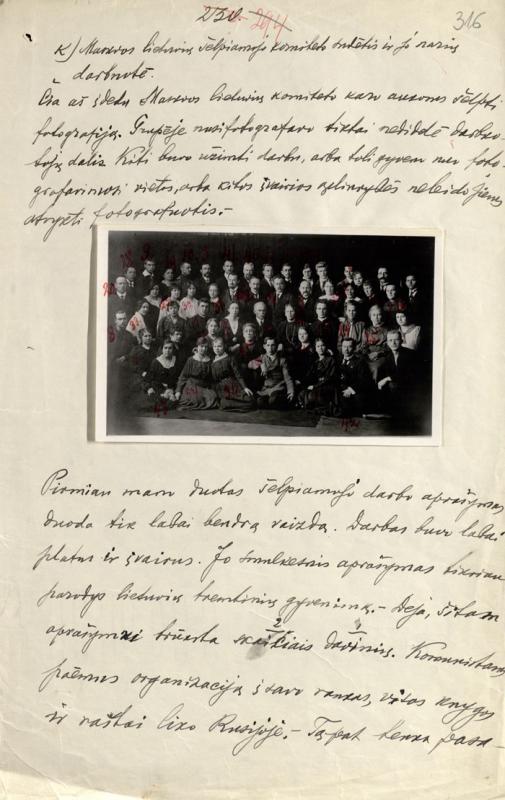 230. 294 316
K) Maskvos lietuvių šelpiamojo komiteto sudėtis ir jo narių
darbuotė.
Čia aš įdedu Maskvos lietuvių komiteto karo aukoms šelpti
fotografiją. Grupėje nusifotografavo tiktai nedidelė darbuo-
tojų dalis. Kiti buvo užimti darbu, arba toli gyveno nuo foto-
grafavimosi vietos, arba kitos įvairios aplinkybės neleido jiems
atvykti fotografuotis.-
Pirmiau mano duotas šelpiamojo darbo aprašymas
duoda tik labai bendrą vaizdą. Darbas buvo labai
platus ir įvairus. Jo smulkesnis aprašymas tikriau
parodys lietuvių tremtinių gyvenimą.- Deja, šitam
aprašymui trūksta skaičiais davinių. Komunistams
paėmus organizaciją į savo rankas, visos knygos
ir raštai liko Rusijoje.- Taip pat tenka pasa-